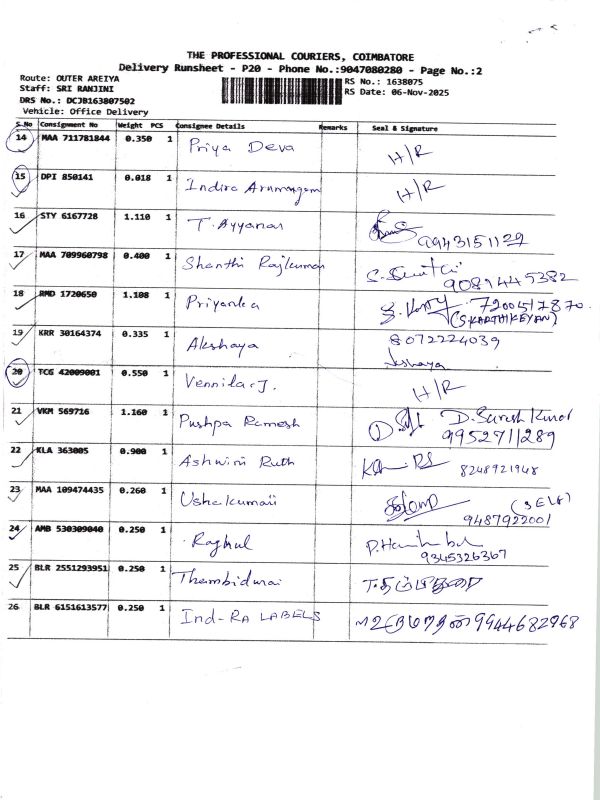 THE PROFESSIONAL COURIERS, COIMBATORE
Delivery Runsheet - P20 - Phone No.:9047080280 - Page No.:2
Route: OUTER AREIYA RS No.: 1638075
Staff: SRI RANJINI RS Date: 06-Nov-2025
DRS No.: DCJB163807502
Vehicle: Office Delivery
S.No Consignment No Weight PCS Consignee Details Remarks Seal & Signature
14 MAA 711781844 0.350 1 Priya Deva H/R
15 DPI 850141 0.018 1 Indira Arumugam H/R
16 STY 6167728 1.110 1 T. Ayyanar 9943151129
17 MAA 709960798 0.400 1 Shanthi Rajkumar 9081445382
18 RMD 1720650 1.108 1 Priyanka 7200517870
(S KARTHIKEYAN)
19 KRR 30164374 0.335 1 Akshaya 8072224039
Akshaya
20 TCG 42009001 0.550 1 Vennila.J. H/R
21 VKM 569716 1.160 1 Pushpa Ramesh D. Suresh Kumar
9952711289
22 KLA 363005 0.900 1 Ashwini Ruth 8248921948
23 MAA 109474435 0.260 1 Ushakumari (SELF)
9487922001
24 AMB 530309040 0.250 1 Raghul
9345326367
25 BLR 2551293951 0.250 1 Thambidurai T.தம்பிதுரை
26 BLR 6151613577 0.250 1 Ind-Ra LABELS 9944682968